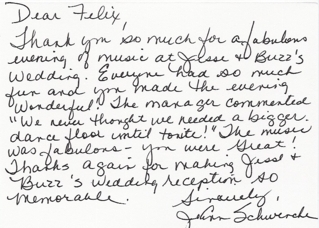 Dear Felix,
Thank you so much for a fabulous
evening of music at Jesse & Buzz's
wedding. Everyone had so much
fun and you made the evening
wonderful! The manager commented
"We never thought we needed a bigger
dance floor until tonite!" The music
was fabulous - you were great!
Thanks again for making Jesse &
Buzz's wedding reception so
memorable. Sincerely,
JoAnn